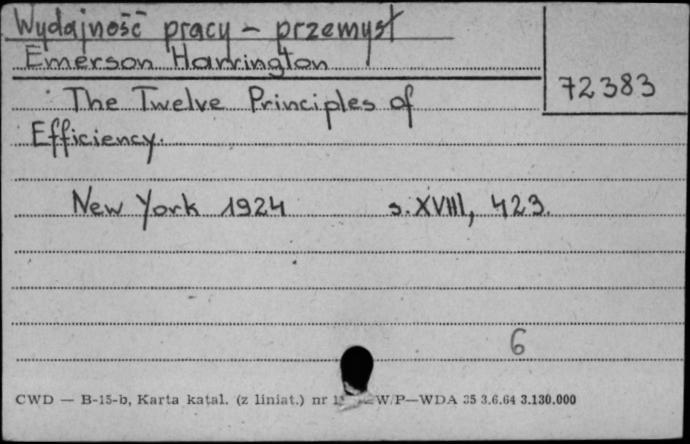 Wydajność pracy – przemysł
Emerson Harrington
72383
The Twelve Principles of
Efficiency.
New York 1924 s. XVIII, 423.
6
CWD — B-15-b, Karta katal. (z liniat.) nr W/P—WDA 35 3.6.64 3.130.000